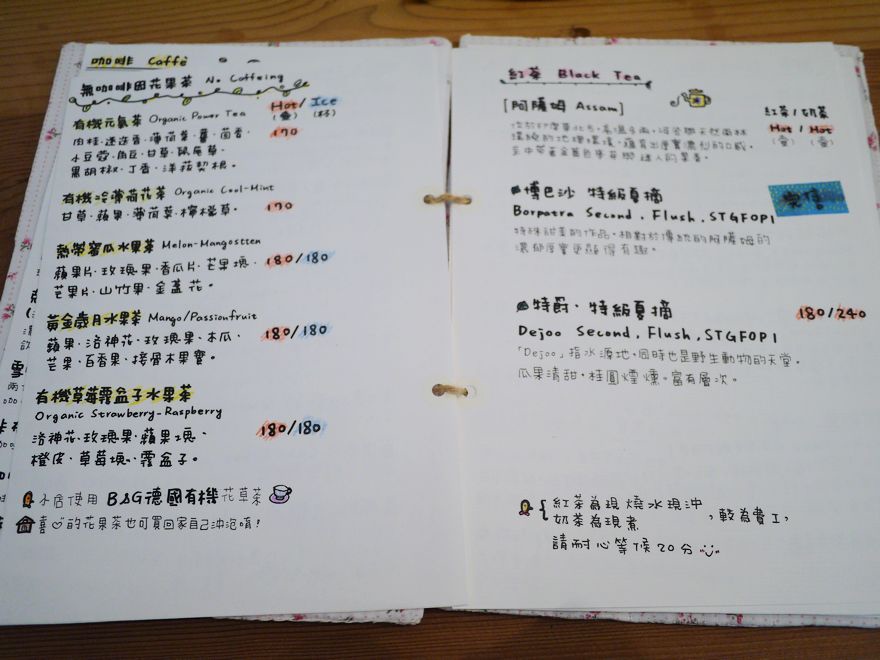 咖啡 Caffè
無咖啡因花果茶 No Caffeing
Hot / Ice
(壺) (杯)
有機元氣茶 Organic Power Tea
170
肉桂·迷迭香·薄荷葉·薑·茴香·
小豆蔻·角豆·甘草·鼠尾草·
黑胡椒·丁香·洋菝契根。
有機冷薄荷花茶 Organic Cool-Mint
甘草·蘋果·薄荷葉·檸檬草。
170
熱帶蜜瓜水果茶 Melon-Mangostten
蘋果片·玫瑰果·香瓜片·芒果塊·
180/180
芒果片·山竹果·金盞花。
黃金歲月水果茶 Mango/Passionfruit
蘋果·洛神花·玫瑰果·木瓜·
180/180
芒果·百香果·接骨木果實。
有機草莓覆盆子水果茶
Organic Strawberry-Raspberry
洛神花·玫瑰果·蘋果塊·
180/180
橙皮·草莓塊·覆盆子。
小店使用 B&G德國有機花草茶
喜♡的花果茶也可買回家自己沖泡唷!
紅茶 Black Tea
[阿薩姆 Assam]
紅茶/奶茶
Hot / Hot
(壺) (壺)
位於印度東北方,高溫多雨,河谷與天然雨林
環繞的地理環境,蘊育出厚實濃烈的口感,
博巴沙 特級夏摘
售
Borpatra Second, Flush, STGFOP1
特殊甜美的作品,相對於傳統的阿薩姆的
濃郁厚實更顯得有趣。
特爵·特級夏摘
180/240
Dejoo Second, Flush, STGFOP1
「Dejoo」指水源地,同時也是野生動物的天堂。
瓜果清甜,桂圓煙燻,富有層次。
紅茶為現燒水現沖
奶茶為現煮
,較為費工,
請耐心等候20分